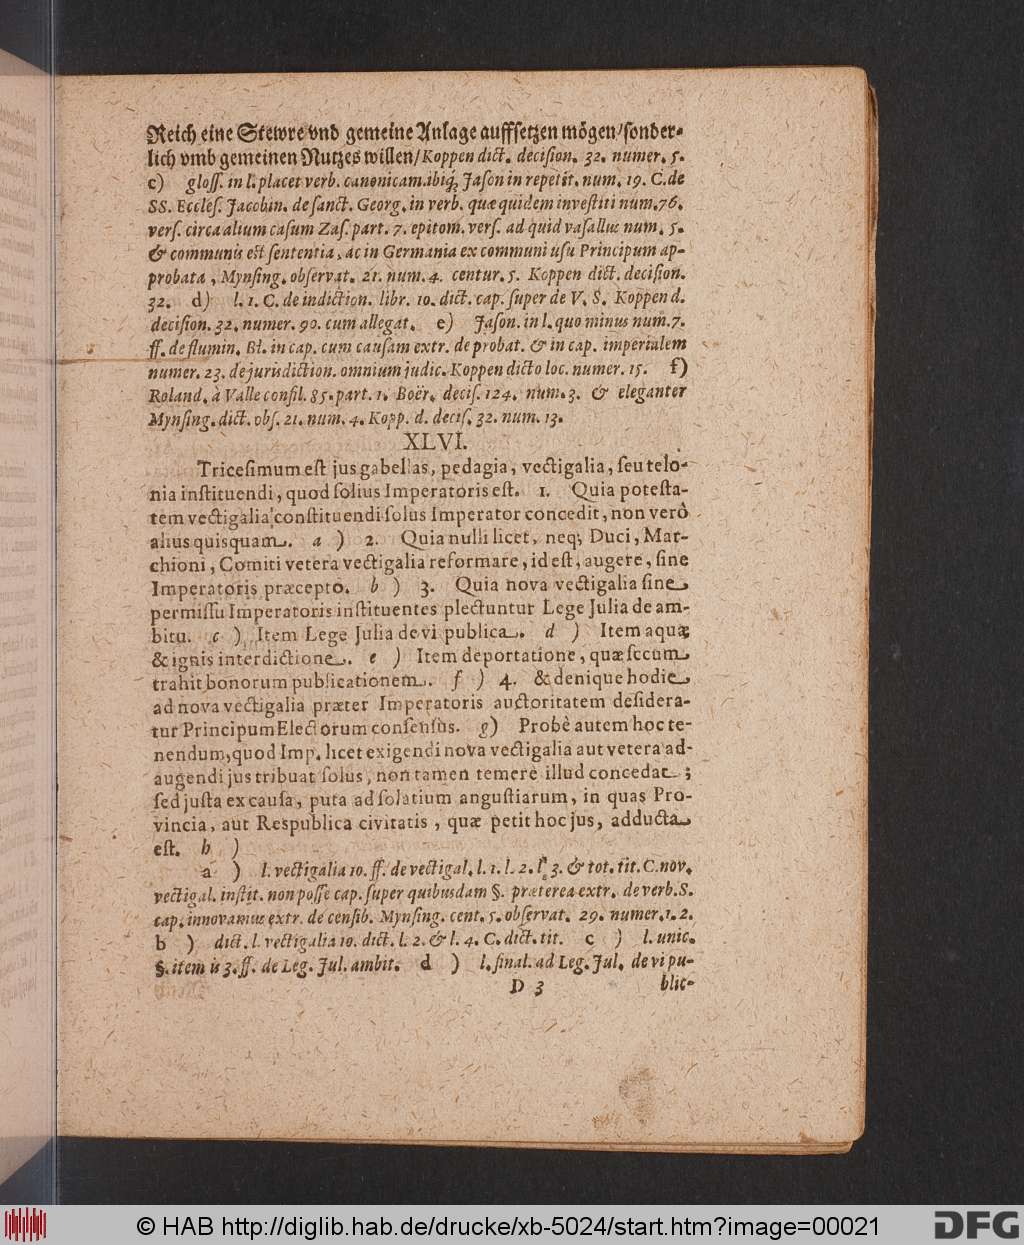 Reich eine Stewre vnd gemeine Anlage auffsetzen mögen/sonder-
lich vmb gemeinen Nutzes willen/Koppen dict. decision. 32. numer. 5.
c) gloss. in l. placet verb. canonicam.ibiq́; Jason in repetit. num. 19. C.de
SS. Eccles. Jacobin. de sanct. Georg. in verb. quæ quidem investiti num.76.
vers. circa alium casum Zas. part. 7. epitom. vers. ad quid vasallus num. 5.
& communis est sententia, ac in Germania ex communi usu Principum ap-
probata, Mynsing. observat. 21. num. 4. centur. 5. Koppen dict. decision.
32. d) l. 1. C. de indiction. libr. 10. dict. cap. super de V. S. Koppen d.
decision. 32. numer. 90. cum allegat. e) Jason. in l. quo minus num.7.
ff. de flumin. Bl. in cap. cum causam extr. de probat. & in cap. imperialem
numer. 23. de jurisdiction. omnium judic. Koppen dicto loc. numer. 15. f)
Roland. à Valle consil. 85. part. 1. Boër. decis. 124. num. 3. & eleganter
Mynsing. dict. obs. 21. num. 4. Kopp. d. decis. 32. num. 13.
XLVI.
Tricesimum est jus gabellas, pedagia, vectigalia, seu telo-
nia instituendi, quod solius Imperatoris est. 1. Quia potesta-
tem vectigalia constituendi solus Imperator concedit, non verò
alius quisquam. a ) 2. Quia nulli licet, neq; Duci, Mar-
chioni, Comiti vetera vectigalia reformare, id est, augere, sine
Imperatoris præcepto. b ) 3. Quia nova vectigalia sine
permissu Imperatoris instituentes plectuntur Lege Julia de am-
bitu. c ) Item Lege Julia de vi publica. d ) Item aquæ
& ignis interdictione. e ) Item deportatione, quæ secum
trahit bonorum publicationem. f ) 4. & denique hodie
ad nova vectigalia præter Imperatoris auctoritatem desidera-
tur Principum Electorum consensus. g) Probè autem hoc te-
nendum, quod Imp. licet exigendi nova vectigalia aut vetera ad-
augendi jus tribuat solus, non tamen temerè illud concedat;
sed justa ex causa, puta ad solatium angustiarum, in quas Pro-
vincia, aut Respublica civitatis, quæ petit hoc jus, adducta
est. h )
a ) l. vectigalia 10. ff. de vectigal. l. 1. l. 2. l. 3. & tot. tit. C. nov.
vectigal. instit. non posse cap. super quibusdam §. præterea extr. de verb. S.
cap. innovamus extr. de censib. Mynsing. cent. 5. observat. 29. numer. 1. 2.
b ) dict. l. vectigalia 10. dict. l. 2. & l. 4. C. dict. tit. c ) l. unic.
§. item is 3. ff. de Leg. Jul. ambit. d ) l. final. ad Leg. Jul. de vi pu-
D 3 blic-
© HAB http://diglib.hab.de/drucke/xb-5024/start.htm?image=00021
DFG